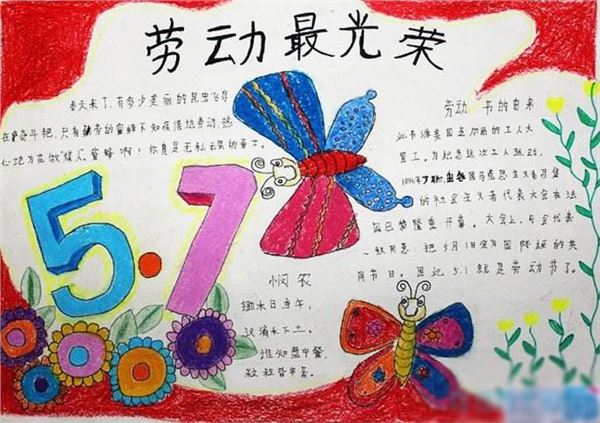 劳动最光荣
春天来了,有多少美丽的昆虫飞鸟
在奋斗耙,只有勤劳的蜜蜂不知疲倦地劳动,热
心地为花做"媒人",蜜蜂啊!你真是无私云荣的勇士。
5.1
悯农
锄禾日当午,
汗滴禾下土。
谁知盘中餐,
粒粒皆辛苦。
劳动 书的由来
此书源美国芝加哥的工人大
罢工。为纪念这次工人运动,
国马克思主义者召集
的社会主义者代表大会在法
国巴黎隆重开幕。大会上,与会代表
一致同意:把5月1日定为国际无的共
同节日。因此5.1就是劳动节了。